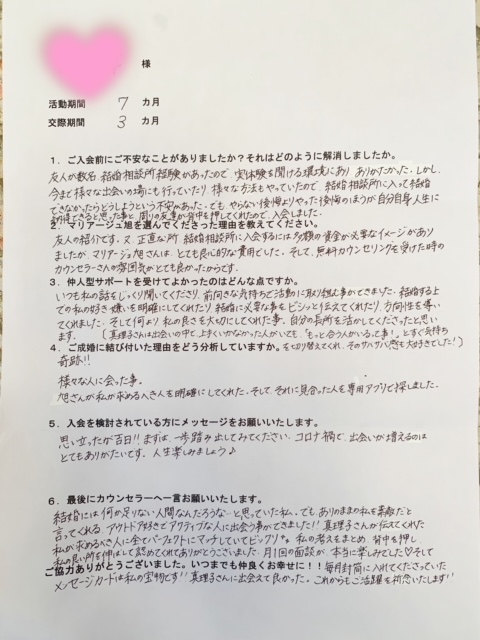 様
活動期間 7 カ月
交際期間 3 カ月
1．ご入会前にご不安なことがありましたか？それはどのように解消しましたか。
友人が数名、結婚相談所経験があったので、実体験を聞ける環境にあり、ありがたかった。しかし、
今まで様々な出会いの場にも行っていたり、様々な方法もやっていたので、結婚相談所に入って結婚
できなかったらどうしようという不安があった。でも、やらない後悔よりやった後悔のほうが自分自身人生に
納得できると思った事と、周りの友達が背中を押してくれたので、入会しました。
2．マリアージュ旭を選んでくださった理由を教えてください。
友人の紹介です。又、正直な所、結婚相談所に入会するには多額の資金が必要なイメージがあり
ましたが、マリアージュ旭さんは、とても良心的な費用でした。そして、無料カウンセリングを受けた時の
カウンセラーさんの雰囲気がとても良かったからです。
3．仲人型サポートを受けてよかったのはどんな点ですか。
いつも私の話をじっくり聞いてくださり、前向きな気持ちで活動に取り組む事ができました。結婚する上
での私の好き・嫌いを明確にしてくれたり、結婚に必要な事をビシッと伝えてくれたり、方向性を導い
てくれました。そして何より、私の良さを大切にしてくれた事、自分の長所を活かしてくださったと思い
ます。（真理子さんは出会いの中で、上手くいかなかった人がいても、"もっと合う人がいるっ事！"とすぐ気持ち
4．ご成婚に結び付いた理由をどう分析していますか。を切り替えてくれ、そのサバサバ感も大好きでした！）
奇跡!!
様々な人に会った事。
旭さんが私が求めるべき人を明確にしてくれた。そして、それに見合った人を専用アプリで探しました。
5．入会を検討されている方にメッセージをお願いいたします。
思い立ったが吉日!! まずは、一歩踏み出してみてください。コロナ禍で、出会いが増えるのは
とてもありがたいです。人生楽しみましょう♪
6．最後にカウンセラーへ一言お願いいたします。
結婚には何か足りない人間なんだろうな…と思っていた私。でも、ありのままの私を素敵だと
言ってくれる アウトドア好きでアクティブな人に出会う事ができました!! 真理子さんが伝えてくれた
私が求めるべき人に全てパーフェクトにマッチしていてビックリ。私の考えをまとめ、背中を押し、
私の良い所を伸ばして認めてくれてありがとうございました。月1回の面談が、本当に楽しみでした♡そして
ご協力ありがとうございました。いつまでも仲良くお幸せに！！毎月封筒に入れてくださっていた
メッセージカードは私の宝物です!! 真理子さんに出会えて良かった。これからもご活躍を祈念いたします!!